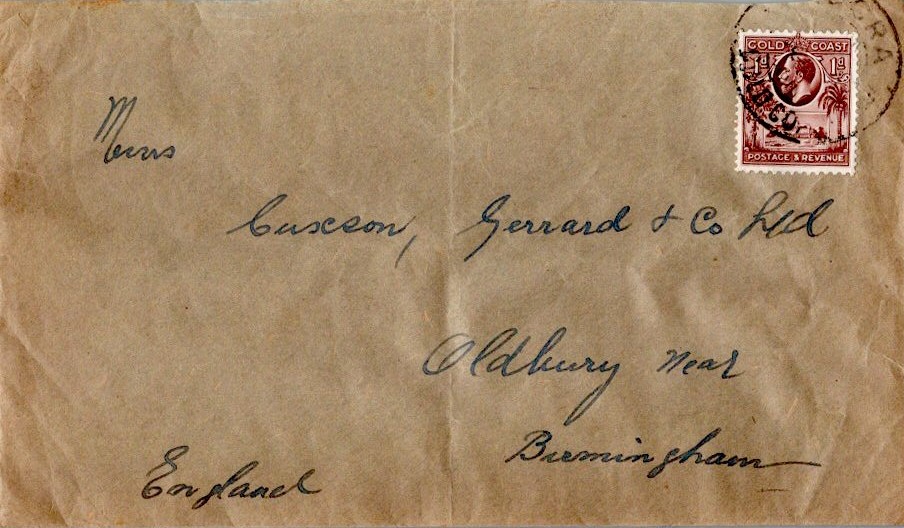 ACCRA
GOLD COAST
1d 1d
POSTAGE & REVENUE
Messrs
Cuxson, Gerrard & Co Ltd
Oldbury near
Birmingham
England